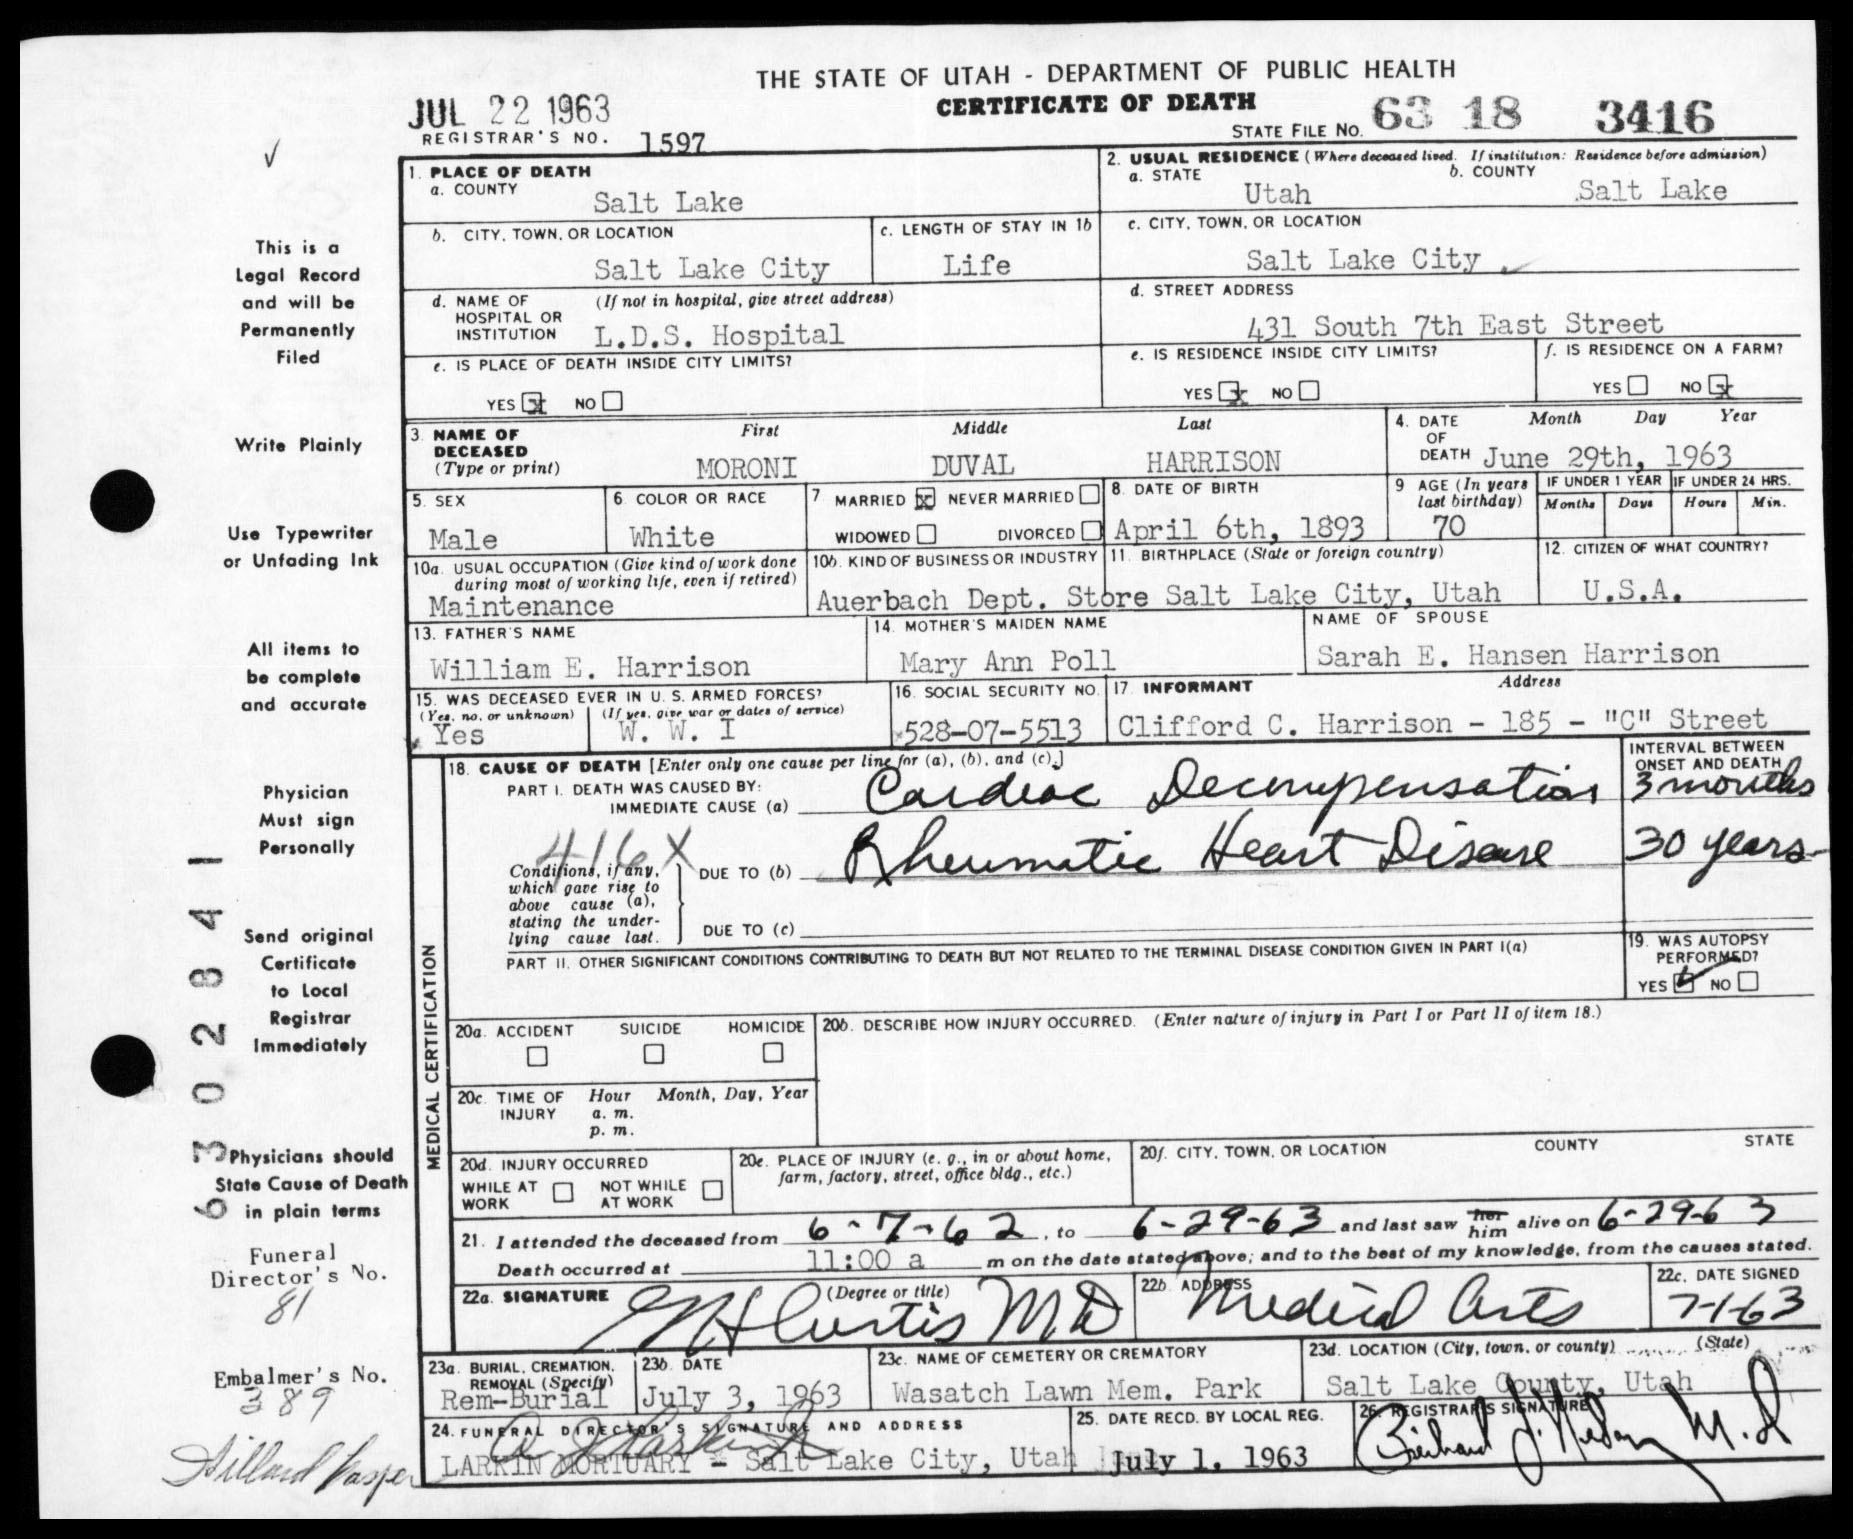 THE STATE OF UTAH - DEPARTMENT OF PUBLIC HEALTH
CERTIFICATE OF DEATH
JUL 22 1963
REGISTRAR'S NO. 1597
STATE FILE NO. 63 18 3416
1. PLACE OF DEATH
a. COUNTY
Salt Lake
2. USUAL RESIDENCE (Where deceased lived. If institution: Residence before admission)
a. STATE
Utah
b. COUNTY
Salt Lake
b. CITY, TOWN, OR LOCATION
Salt Lake City
c. LENGTH OF STAY IN 1b
Life
c. CITY, TOWN, OR LOCATION
Salt Lake City
d. NAME OF HOSPITAL OR INSTITUTION
(If not in hospital, give street address)
L.D.S. Hospital
d. STREET ADDRESS
431 South 7th East Street
e. IS PLACE OF DEATH INSIDE CITY LIMITS?
YES x NO
e. IS RESIDENCE INSIDE CITY LIMITS?
YES x NO
f. IS RESIDENCE ON A FARM?
YES NO x
3. NAME OF DECEASED (Type or print)
First Middle Last
MORONI DUVAL HARRISON
4. DATE OF DEATH
Month Day Year
June 29th, 1963
5. SEX
Male
6. COLOR OR RACE
White
7. MARRIED x NEVER MARRIED
WIDOWED DIVORCED
8. DATE OF BIRTH
April 6th, 1893
9. AGE (In years last birthday)
70
IF UNDER 1 YEAR
Months Days
IF UNDER 24 HRS.
Hours Min.
10a. USUAL OCCUPATION (Give kind of work done during most of working life, even if retired)
Maintenance
10b. KIND OF BUSINESS OR INDUSTRY
Auerbach Dept. Store
11. BIRTHPLACE (State or foreign country)
Salt Lake City, Utah
12. CITIZEN OF WHAT COUNTRY?
U.S.A.
13. FATHER'S NAME
William E. Harrison
14. MOTHER'S MAIDEN NAME
Mary Ann Poll
NAME OF SPOUSE
Sarah E. Hansen Harrison
15. WAS DECEASED EVER IN U. S. ARMED FORCES?
(Yes, no, or unknown) (If yes, give war or dates of service)
Yes W. W. I
16. SOCIAL SECURITY NO.
528-07-5513
17. INFORMANT Address
Clifford C. Harrison - 185 - "C" Street
MEDICAL CERTIFICATION
18. CAUSE OF DEATH [Enter only one cause per line for (a), (b), and (c).]
INTERVAL BETWEEN ONSET AND DEATH
PART I. DEATH WAS CAUSED BY:
IMMEDIATE CAUSE (a) Cardiac Decompensation 3 months
416X
Conditions, if any, which gave rise to above cause (a), stating the underlying cause last.
DUE TO (b) Rheumatic Heart Disease 30 years
DUE TO (c)
PART II. OTHER SIGNIFICANT CONDITIONS CONTRIBUTING TO DEATH BUT NOT RELATED TO THE TERMINAL DISEASE CONDITION GIVEN IN PART I(a)
19. WAS AUTOPSY PERFORMED?
YES ✓ NO
20a. ACCIDENT SUICIDE HOMICIDE
20b. DESCRIBE HOW INJURY OCCURRED. (Enter nature of injury in Part I or Part II of item 18.)
20c. TIME OF INJURY
Hour Month, Day, Year
a. m.
p. m.
20d. INJURY OCCURRED
WHILE AT WORK NOT WHILE AT WORK
20e. PLACE OF INJURY (e. g., in or about home, farm, factory, street, office bldg., etc.)
20f. CITY, TOWN, OR LOCATION COUNTY STATE
21. I attended the deceased from 6-7-62, to 6-29-63 and last saw her him alive on 6-29-63
Death occurred at 11:00 a m on the date stated above; and to the best of my knowledge, from the causes stated.
22a. SIGNATURE (Degree or title)
Curtis MD
22b. ADDRESS
Medical Arts
22c. DATE SIGNED
7-1-63
23a. BURIAL, CREMATION, REMOVAL (Specify)
Rem-Burial
23b. DATE
July 3, 1963
23c. NAME OF CEMETERY OR CREMATORY
Wasatch Lawn Mem. Park
23d. LOCATION (City, town, or county) (State)
Salt Lake County, Utah
24. FUNERAL DIRECTOR'S SIGNATURE AND ADDRESS
LARKIN MORTUARY - Salt Lake City, Utah
25. DATE RECD. BY LOCAL REG.
July 1, 1963
26. REGISTRAR'S SIGNATURE
M.D
✓
This is a
Legal Record
and will be
Permanently
Filed
Write Plainly
Use Typewriter
or Unfading Ink
All items to
be complete
and accurate
Physician
Must sign
Personally
Send original
Certificate
to Local
Registrar
Immediately
Physicians should
State Cause of Death
in plain terms
Funeral
Director's No.
81
Embalmer's No.
389
6302841